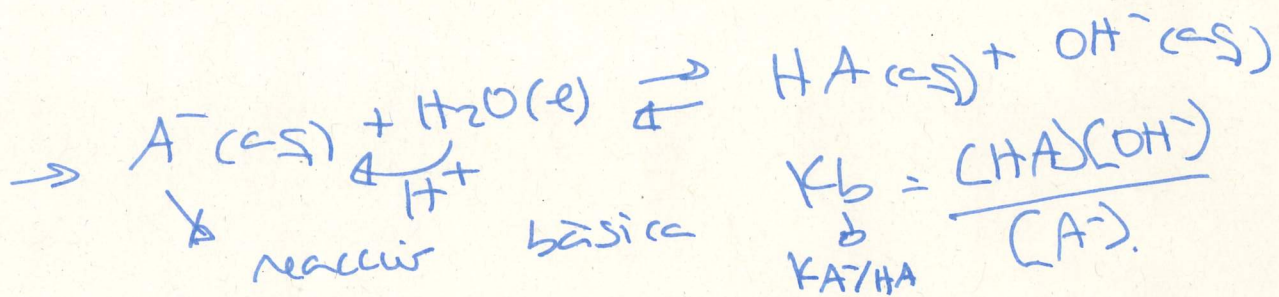 → A⁻(aq) + H₂O(l) ⇌ HA(aq) + OH⁻(aq)
H⁺
reacció bàsica Kb = (HA)(OH⁻)/(A⁻).
KA⁻/HA